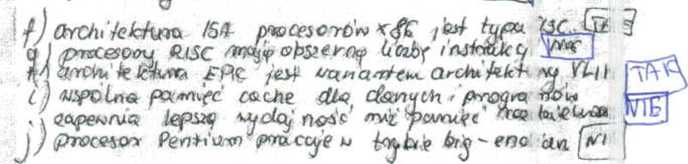 f) architektura ISA procesorów x86 jest typu CISC. TAK
g) procesory RISC mają obszerną liczbę instrukcji NIE
h) architektura EPIC jest wariantem architektury VLIW TAK
i) wspólna pamięć cache dla danych i programów
zapewnia lepszą wydajność niż pamięć rozdzielona NIE
j) procesor Pentium pracuje w trybie big-endian NIE